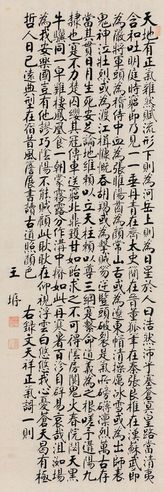 天地有正氣雜然賦流形下則為河岳上則為日星於人曰浩然沛乎塞蒼冥皇路當清夷
含和吐明庭時窮節乃見一一垂丹青在齊太史簡在晉董狐筆在秦張良椎在漢蘇武節
為嚴將軍頭為嵇侍中血為張睢陽齒為顏常山舌或為遼東帽清操厲冰雪或為出師表
鬼神泣壯烈或為渡江楫慷慨吞胡羯或為擊賊笏逆豎頭破裂是氣所磅礴凜烈萬古存
當其貫日月生死安足論地維賴以立天柱賴以尊三綱實繫命道義為之根嗟予遘陽九
隸也實不力楚囚纓其冠傳車送窮北鼎鑊甘如飴求之不可得陰房闃鬼火春院閟天黑
牛驥同一皂雞棲鳳凰食一朝蒙霧露分作溝中瘠如此再寒暑百沴自辟易哀哉沮洳場
為我安樂國豈有他繆巧陰陽不能賊顧此耿耿在仰視浮雲白悠悠我心憂蒼天曷有極
哲人日已遠典型在夙昔風簷展書讀古道照顏色
右錄文天祥正氣歌一則
王